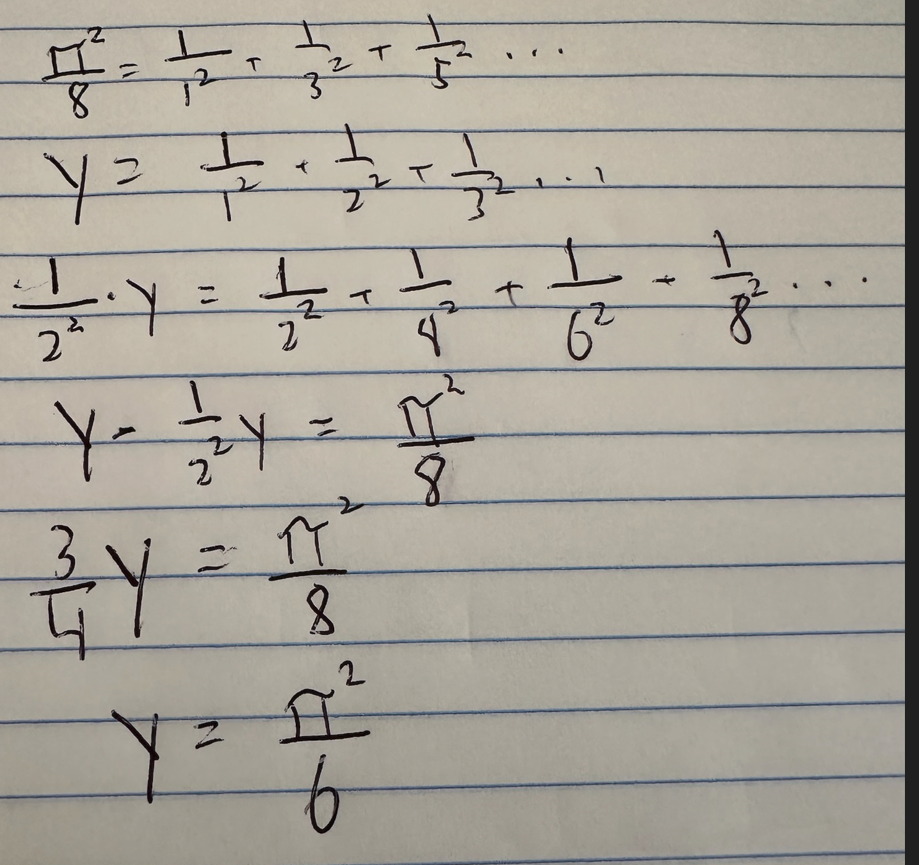 π²/8 = 1/1² + 1/3² + 1/5² ...
y = 1/1² + 1/2² + 1/3² ...
1/2² · y = 1/2² + 1/4² + 1/6² + 1/8² ...
y - 1/2² y = π²/8
3/4 y = π²/8
y = π²/6